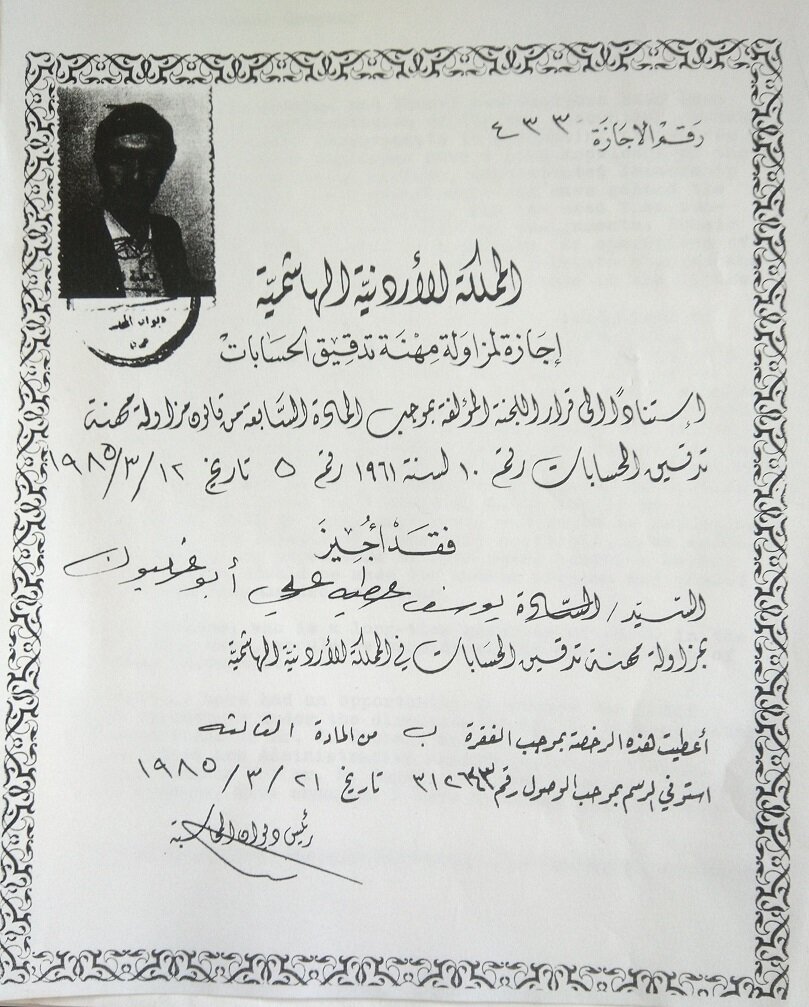 رقم الاجازة ٤٣٣
ديوان المحاسبة
المملكة الأردنية الهاشمية
إجازة لمزاولة مهنة تدقيق الحسابات
إستناداً الى قرار اللجنة المؤلفة بموجب المادة السابعة من قانون مزاولة مهنة
تدقيق الحسابات رقم ١٠ لسنة ١٩٦١ رقم ٥ تاريخ ١٩٨٥/٣/١٢
فقد أجيز
السيد / السادة يوسف عطيه علي أبو غلبون
بمزاولة مهنة تدقيق الحسابات في المملكة الأردنية الهاشمية
أعطيت هذه الرخصة بموجب الفقرة ب من المادة الثالثه
استوفي الرسم بموجب الوصول رقم تاريخ ١٩٨٥/٣/٢١
رئيس ديوان المحاسبة